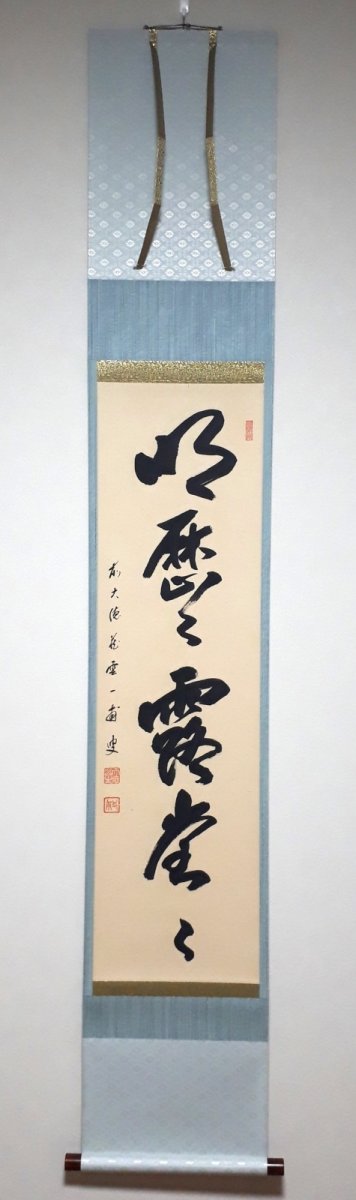 明歴々露堂々
前大徳 藏雲 一甫叟